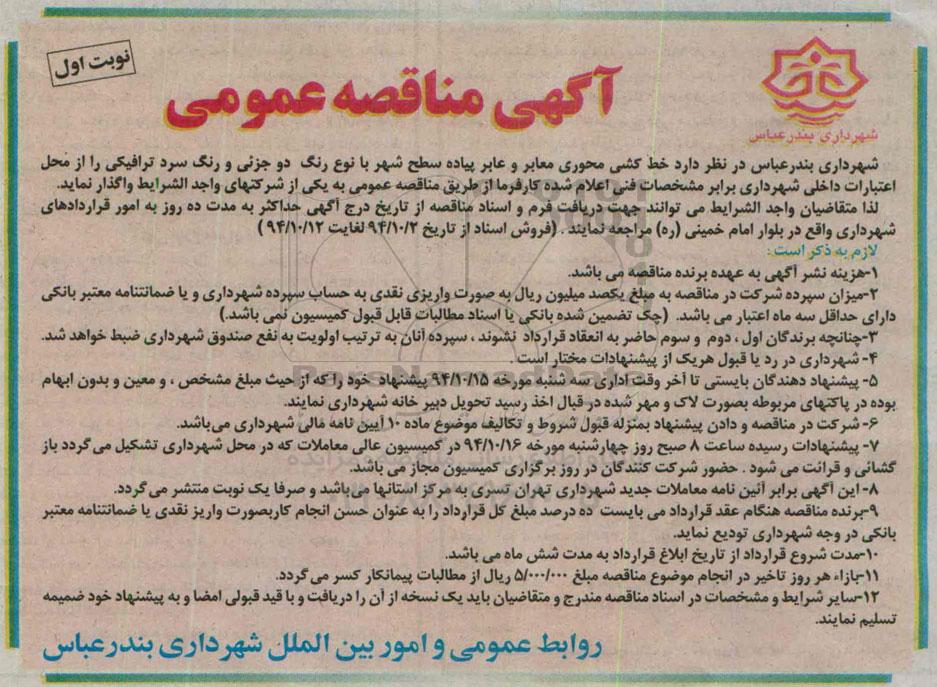 نوبت اول
آگهی مناقصه عمومی
شهرداری بندرعباس
شهرداری بندرعباس در نظر دارد خط کشی محوری معابر و عابر پیاده سطح شهر با نوع رنگ دو جزئی و رنگ سرد ترافیکی را از محل
اعتبارات داخلی شهرداری برابر مشخصات فنی اعلام شده کارفرما از طریق مناقصه عمومی به یکی از شرکتهای واجد الشرایط واگذار نماید.
لذا متقاضیان واجد الشرایط می توانند جهت دریافت فرم و اسناد مناقصه از تاریخ درج آگهی حداکثر به مدت ده روز به امور قراردادهای
شهرداری واقع در بلوار امام خمینی (ره) مراجعه نمایند . (فروش اسناد از تاریخ ۹۴/۱۰/۲ لغایت ۹۴/۱۰/۱۲ )
لازم به ذکر است :
۱-هزینه نشر آگهی به عهده برنده مناقصه می باشد.
۲-میزان سپرده شرکت در مناقصه به مبلغ یکصد میلیون ریال به صورت واریزی نقدی به حساب سپرده شهرداری و یا ضمانتنامه معتبر بانکی
دارای حداقل سه ماه اعتبار می باشد. (چک تضمین شده بانکی یا اسناد مطالبات قابل قبول کمیسیون نمی باشد.)
۳-چنانچه برندگان اول ، دوم و سوم حاضر به انعقاد قرارداد نشوند ، سپرده آنان به ترتیب اولویت به نفع صندوق شهرداری ضبط خواهد شد.
۴- شهرداری در رد یا قبول هریک از پیشنهادات مختار است .
۵- پیشنهاد دهندگان بایستی تا آخر وقت اداری سه شنبه مورخه ۹۴/۱۰/۱۵ پیشنهاد خود را که از حیث مبلغ مشخص ، و معین و بدون ابهام
بوده در پاکتهای مربوطه بصورت لاک و مهر شده در قبال اخذ رسید تحویل دبیر خانه شهرداری نمایند.
۶- شرکت در مناقصه و دادن پیشنهاد بمنزله قبول شروط و تکالیف موضوع ماده ۱۰ آیین نامه مالی شهرداری می‌باشد.
۷- پیشنهادات رسیده ساعت ۸ صبح روز چهارشنبه مورخه ۹۴/۱۰/۱۶ در کمیسیون عالی معاملات که در محل شهرداری تشکیل می گردد باز
گشائی و قرائت می شود . حضور شرکت کنندگان در روز برگزاری کمیسیون مجاز می باشد.
۸- این آگهی برابر آئین نامه معاملات جدید شهرداری تهران تسری به مرکز استانها می‌باشد و صرفا یک نوبت منتشر می گردد.
۹-برنده مناقصه هنگام عقد قرارداد می بایست ده درصد مبلغ کل قرارداد را به عنوان حسن انجام کاربصورت واریز نقدی یا ضمانتنامه معتبر
بانکی در وجه شهرداری تودیع نماید.
۱۰-مدت شروع قرارداد از تاریخ ابلاغ قرارداد به مدت شش ماه می باشد.
۱۱-بازاء هر روز تاخیر در انجام موضوع مناقصه مبلغ ۵/۰۰۰/۰۰۰ ریال از مطالبات پیمانکار کسر می گردد.
۱۲-سایر شرایط و مشخصات در اسناد مناقصه مندرج و متقاضیان باید یک نسخه از آن را دریافت و با قید قبولی امضا و به پیشنهاد خود ضمیمه
تسلیم نمایند.
روابط عمومی و امور بین الملل شهرداری بندرعباس
ParsNamadData